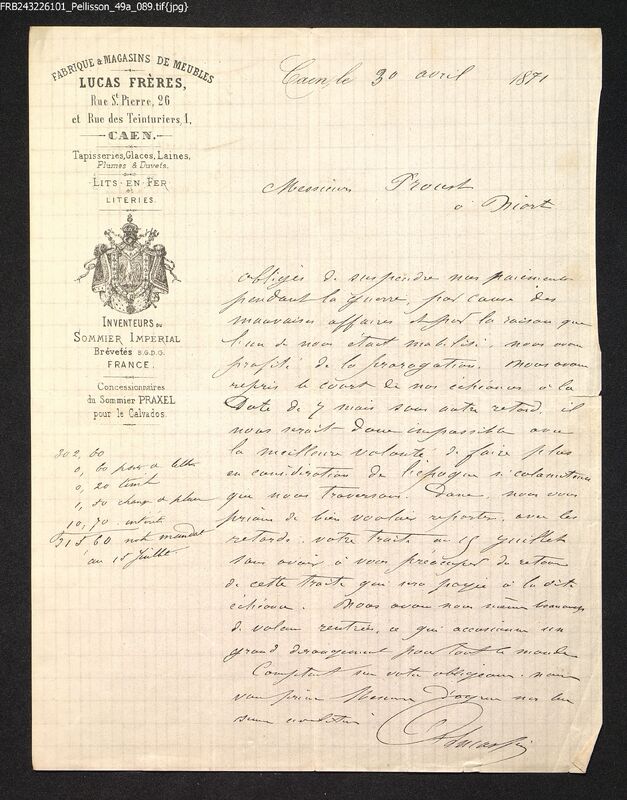 FRB243226101_Pellisson_49a_089.tif{jpg}
FABRIQUE & MAGASINS DE MEUBLES
LUCAS FRÈRES,
Rue St. Pierre, 26
et Rue des Teinturiers, 1,
CAEN.
Tapisseries, Glaces, Laines,
Plumes & Duvets,
LITS-EN-FER
ET
LITERIES.
INVENTEURS DU
SOMMIER IMPERIAL
Brévetés S.G.D.G.
FRANCE.
Concessionnaires
du Sommier PRAXEL
pour le Calvados.
Caen, le 30 avril 1871
Messieurs Proust
à Niort
obligés de suspendre nos paiements
pendant la guerre, par cause des
mauvaises affaires et par la raison que
l'un de nous était mobilisé, nous avons
profité de la prorogation. Nous avons
repris le court de nos échéances à la
Date de 7 mois sans autre retard, il
nous serait donc impossible avec
la meilleure volonté de faire plus
en considération de l'époque si calamiteuse
que nous traversons. Donc, nous vous
prions de bien vouloir reporter, avec les
retards, votre traite au 15 Juillet
sans avoir à vous préoccuper du retour
de cette traite qui sera payée à la dite
échéance. Nous avons nous même beaucoup
de valeurs rentrées, ce qui occasionne un
grand dérangement pour tout le monde
Comptant sur votre obligeance, nous
vous prions Messieurs d'agréer nos bien
802,60
0,60 port de lettre
0,20 timb
1,50 change de place
10,70 intérêt
815 60 notre mandat
au 15 Juillet